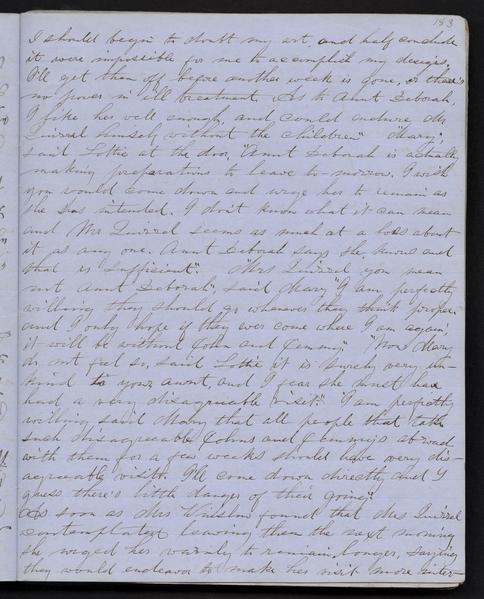 183
I should begin to doubt my art, and half conclude
it were impossible for me to accomplish my designs.
I'll get them off before another week is gone, or there's
no power in ill treatment. As to Aunt Deborah,
I like her well enough, and could endure Mr
Quirrel himself, without the children" "Mary,"
said Lottie at the door, "Aunt Deborah is actually
making preparations to leave to-morrow. I wish
you would come down and urge her to remain as
she has intended. I don't know what it can mean
and Mr Quirrel seems as much at a loss about
it as any one. Aunt Deborah says she knows and
that is sufficient." "Mrs Quirrel you mean
not Aunt Deborah", said Mary "I am perfectly
willing they should go whenever they think proper
and I only hope if they ever come where I am again,
it will be without John and Jemmy." "Now Mary
do not feel so, said Lottie it is surely very un-
kind to your aunt, and I fear she must have
had a very disagreeable visit." I am perfectly
willing, said Mary that all people that take
such disagreeable Johns and Jemmys abroad
with them for a few weeks should have very dis-
agreeable visits. I'll come down directly and I
guess there's little danger of their going."
As soon as Mrs Winslow found that Mrs Quirrel
contemplated leaving them the next morning
she urged her warmly to remain longer, saying
they would endeavor to make her visit more inter-